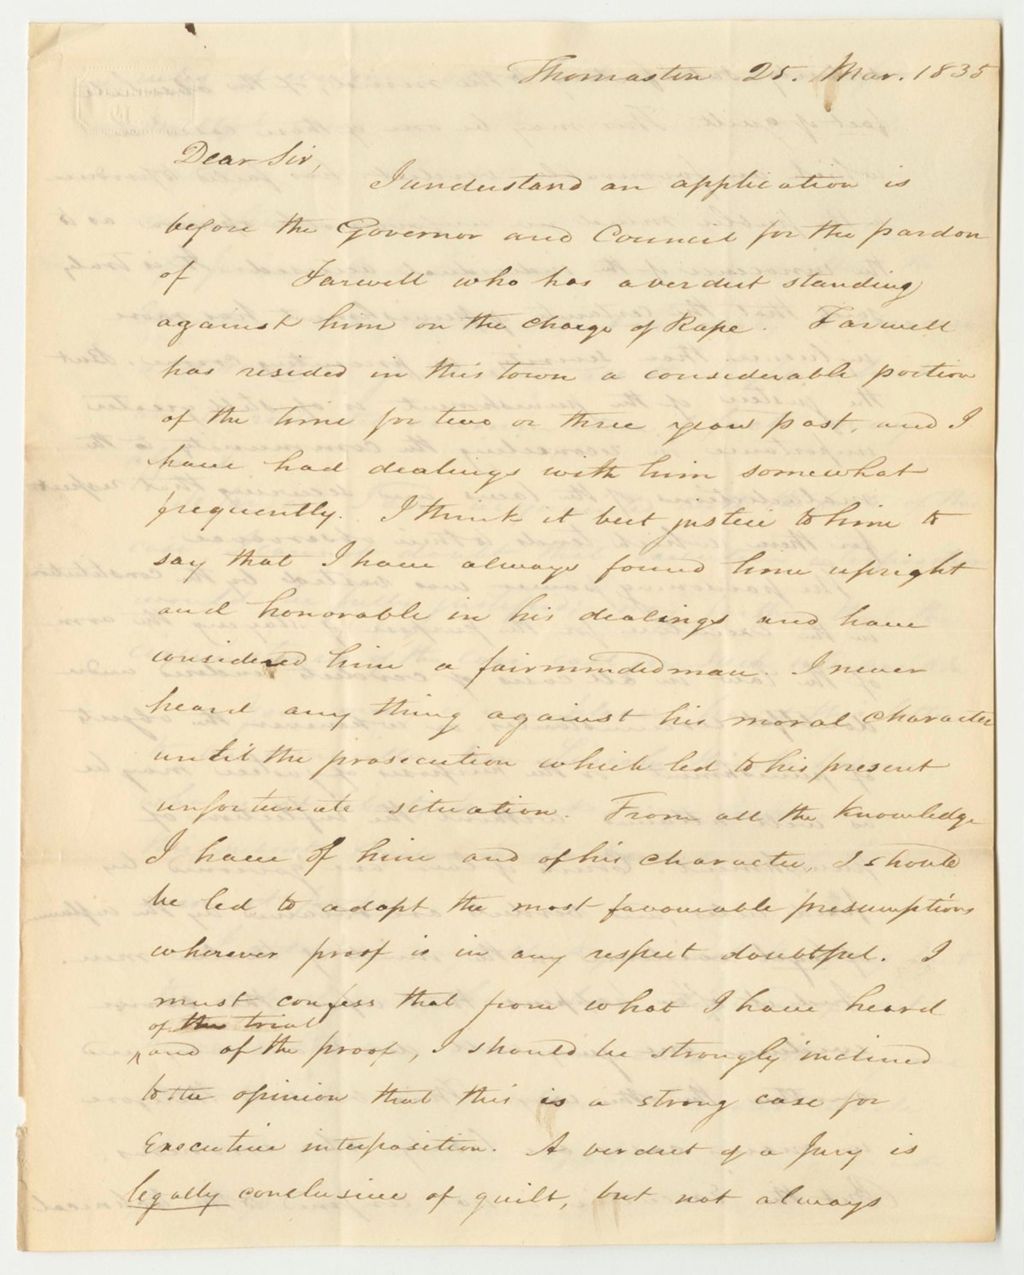 Thomaston 25. Mar. 1835
Dear Sir,
I understand an application is
before the Governor and Council for the pardon
of Farwell who has a verdict standing
against him on the charge of Rape. Farwell
has resided in this town a considerable portion
of the time for two or three years past, and I
have had dealings with him somewhat
frequently. I think it but justice to him to
say that I have always found him upright
and honorable in his dealings and have
considered him a fairminded man. I never
heard any thing against his moral character
until the prosecution which led to his present
unfortunate situation. From all the knowledge
I have of him and of his character, I should
be led to adopt the most favourable presumptions
wherever proof is in any respect doubtful. I
must confess that from what I have heard
of the trial
and of the proof, I should be strongly inclined
to the opinion that this is a strong case for
Executive interposition. A verdict of a Jury is
legally conclusive of guilt, but not always